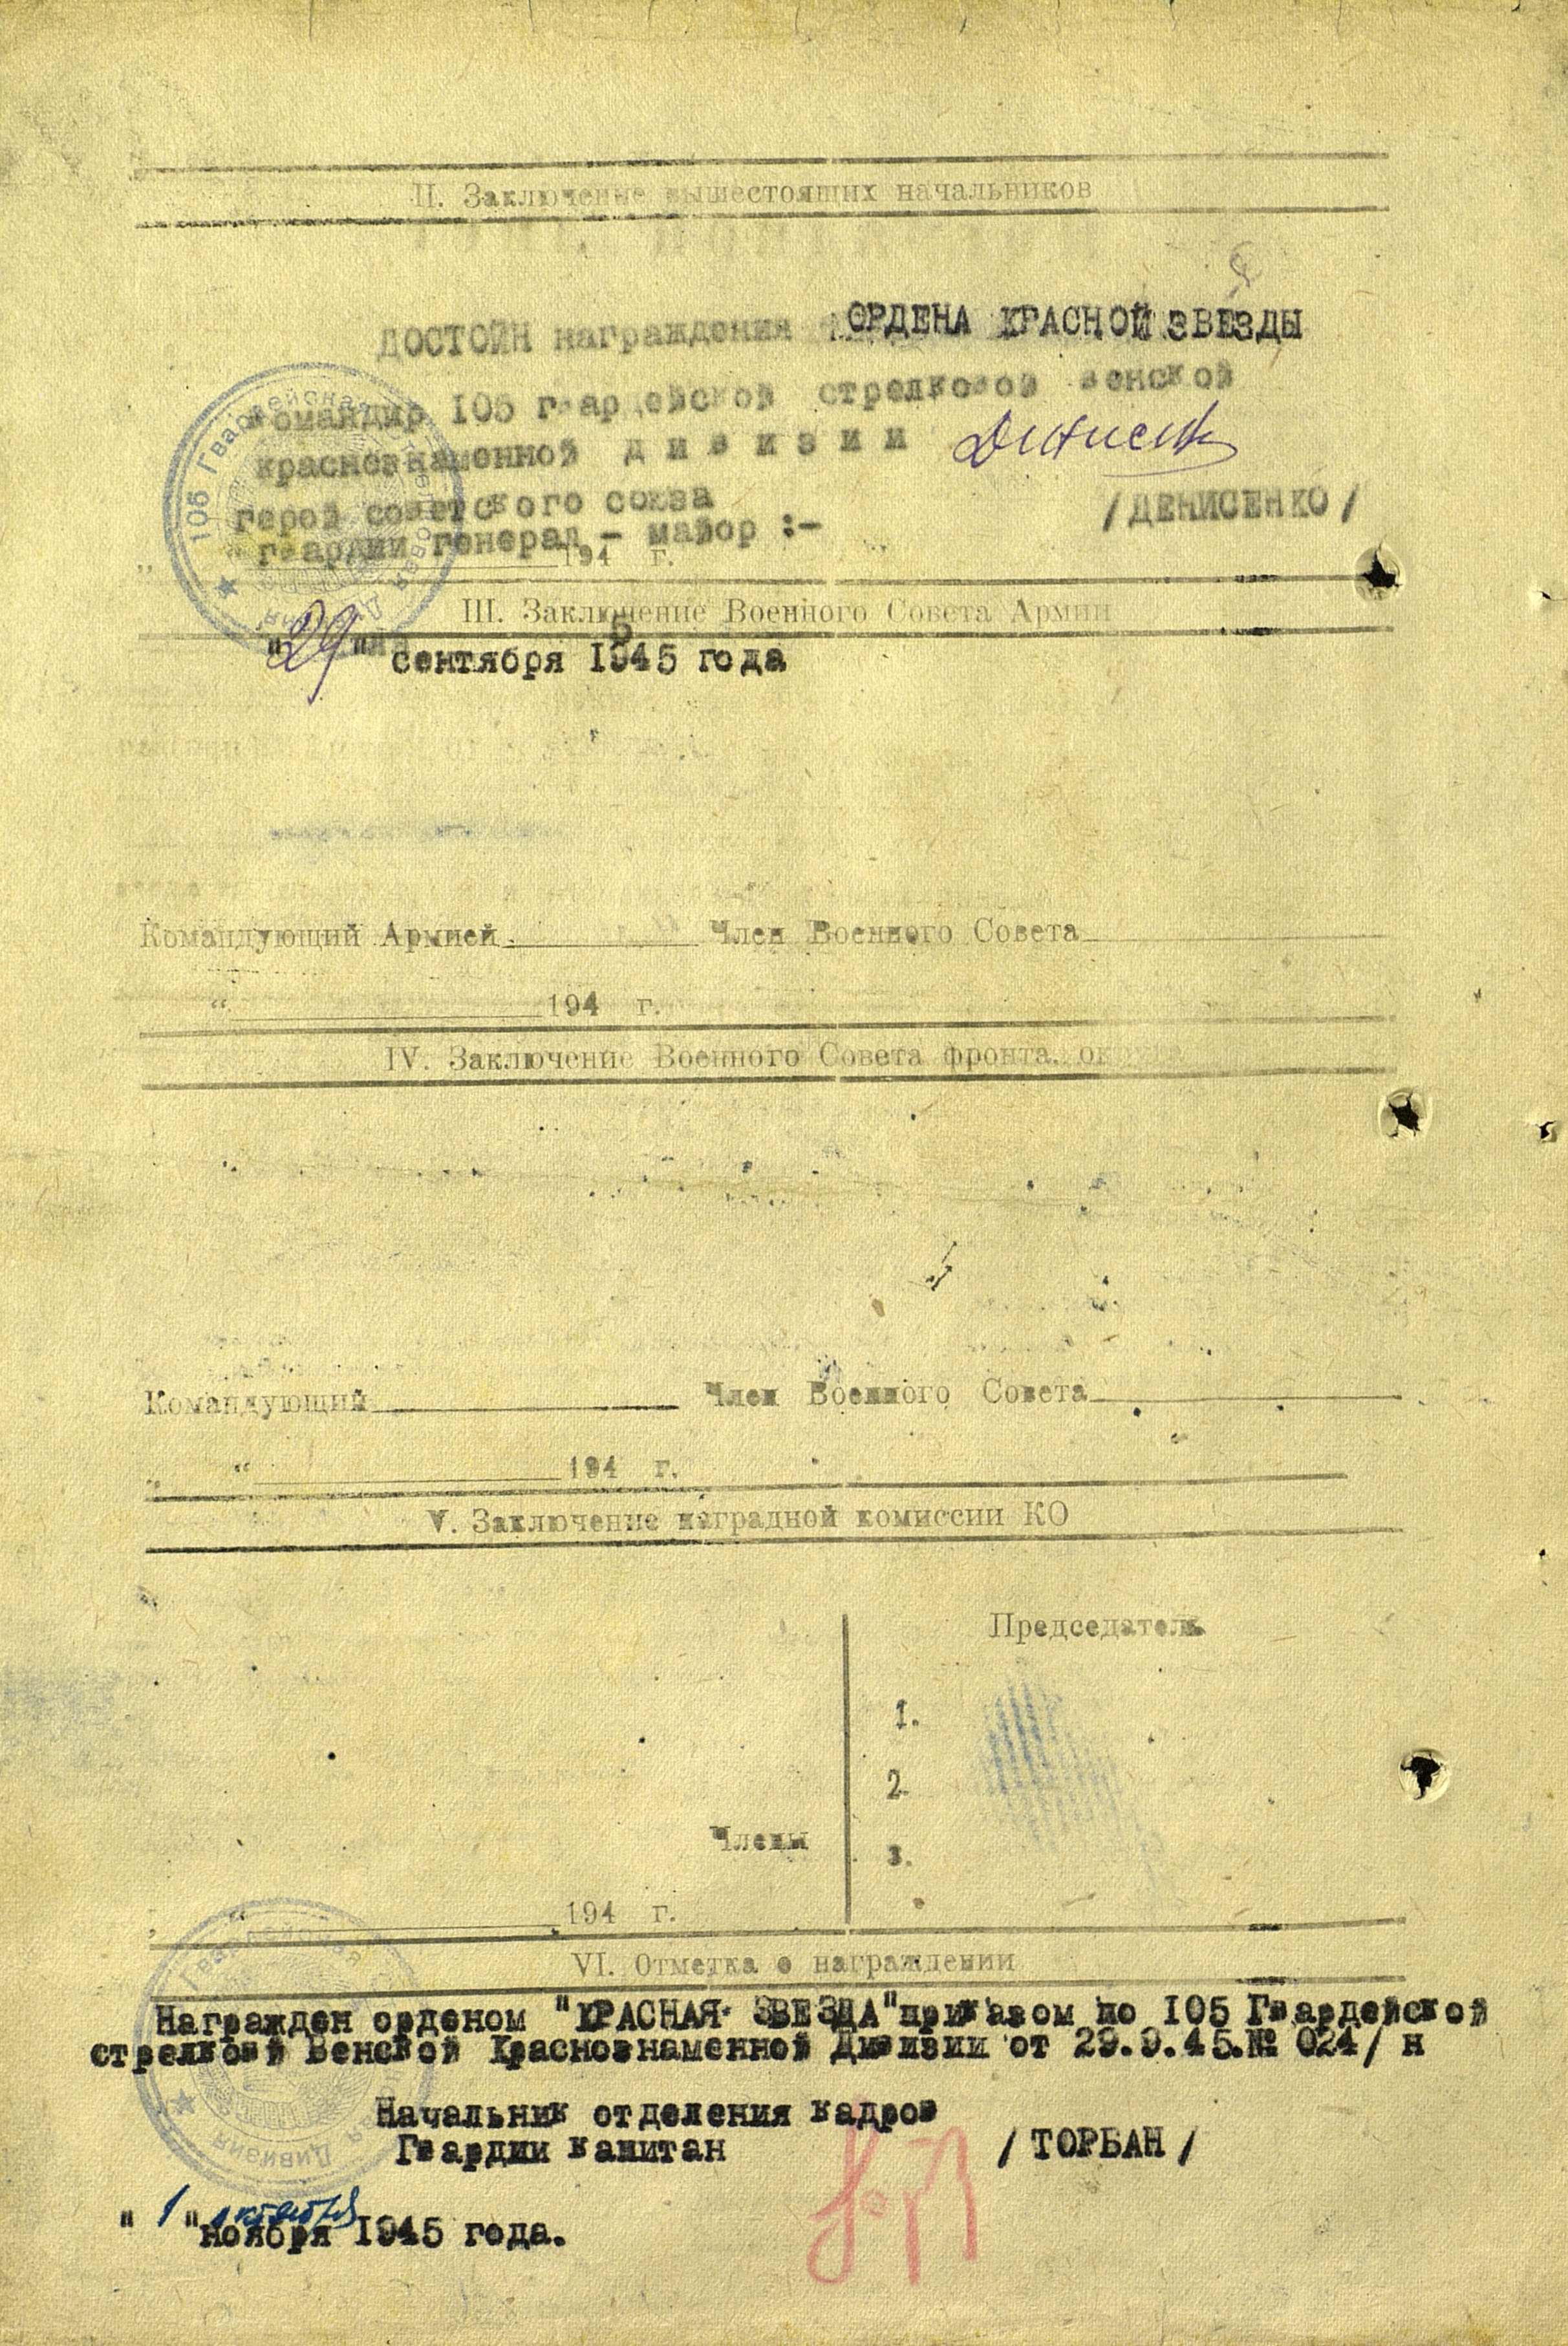 II. Заключение вышестоящих начальников
ДОСТОЙН награждения ОРДЕНА КРАСНОЙ ЗВЕЗДЫ
командир 105 гвардейской стрелковой венской
краснознаменной дивизии
герой советского союза
/ДЕНИСЕНКО/
гвардии генерал - майор :-
„ 194 г.
105 Гвардейская Стрелковая Дивизия
III. Заключение Военного Совета Армии
"29" сентября 1945 года
Командующий Армией Член Военного Совета
“ 194 г.
IV. Заключение Военного Совета фронта,
Командующий Член Военного Совета
„ “ 194 г.
V. Заключение наградной комиссии КО
Председатель
1.
2
Члены
3.
“ 194 г.
VI. Отметка о награждении
Награжден орденом "КРАСНАЯ ЗВЕЗДА" приказом по 105 Гвардейской
стрелковой Венской Краснознаменной Дивизии от 29.9.45.№ 024/ н
Начальник отделения кадров
Гвардии капитан /ТОРБАН/
октября
" 1 "ноября 1945 года.